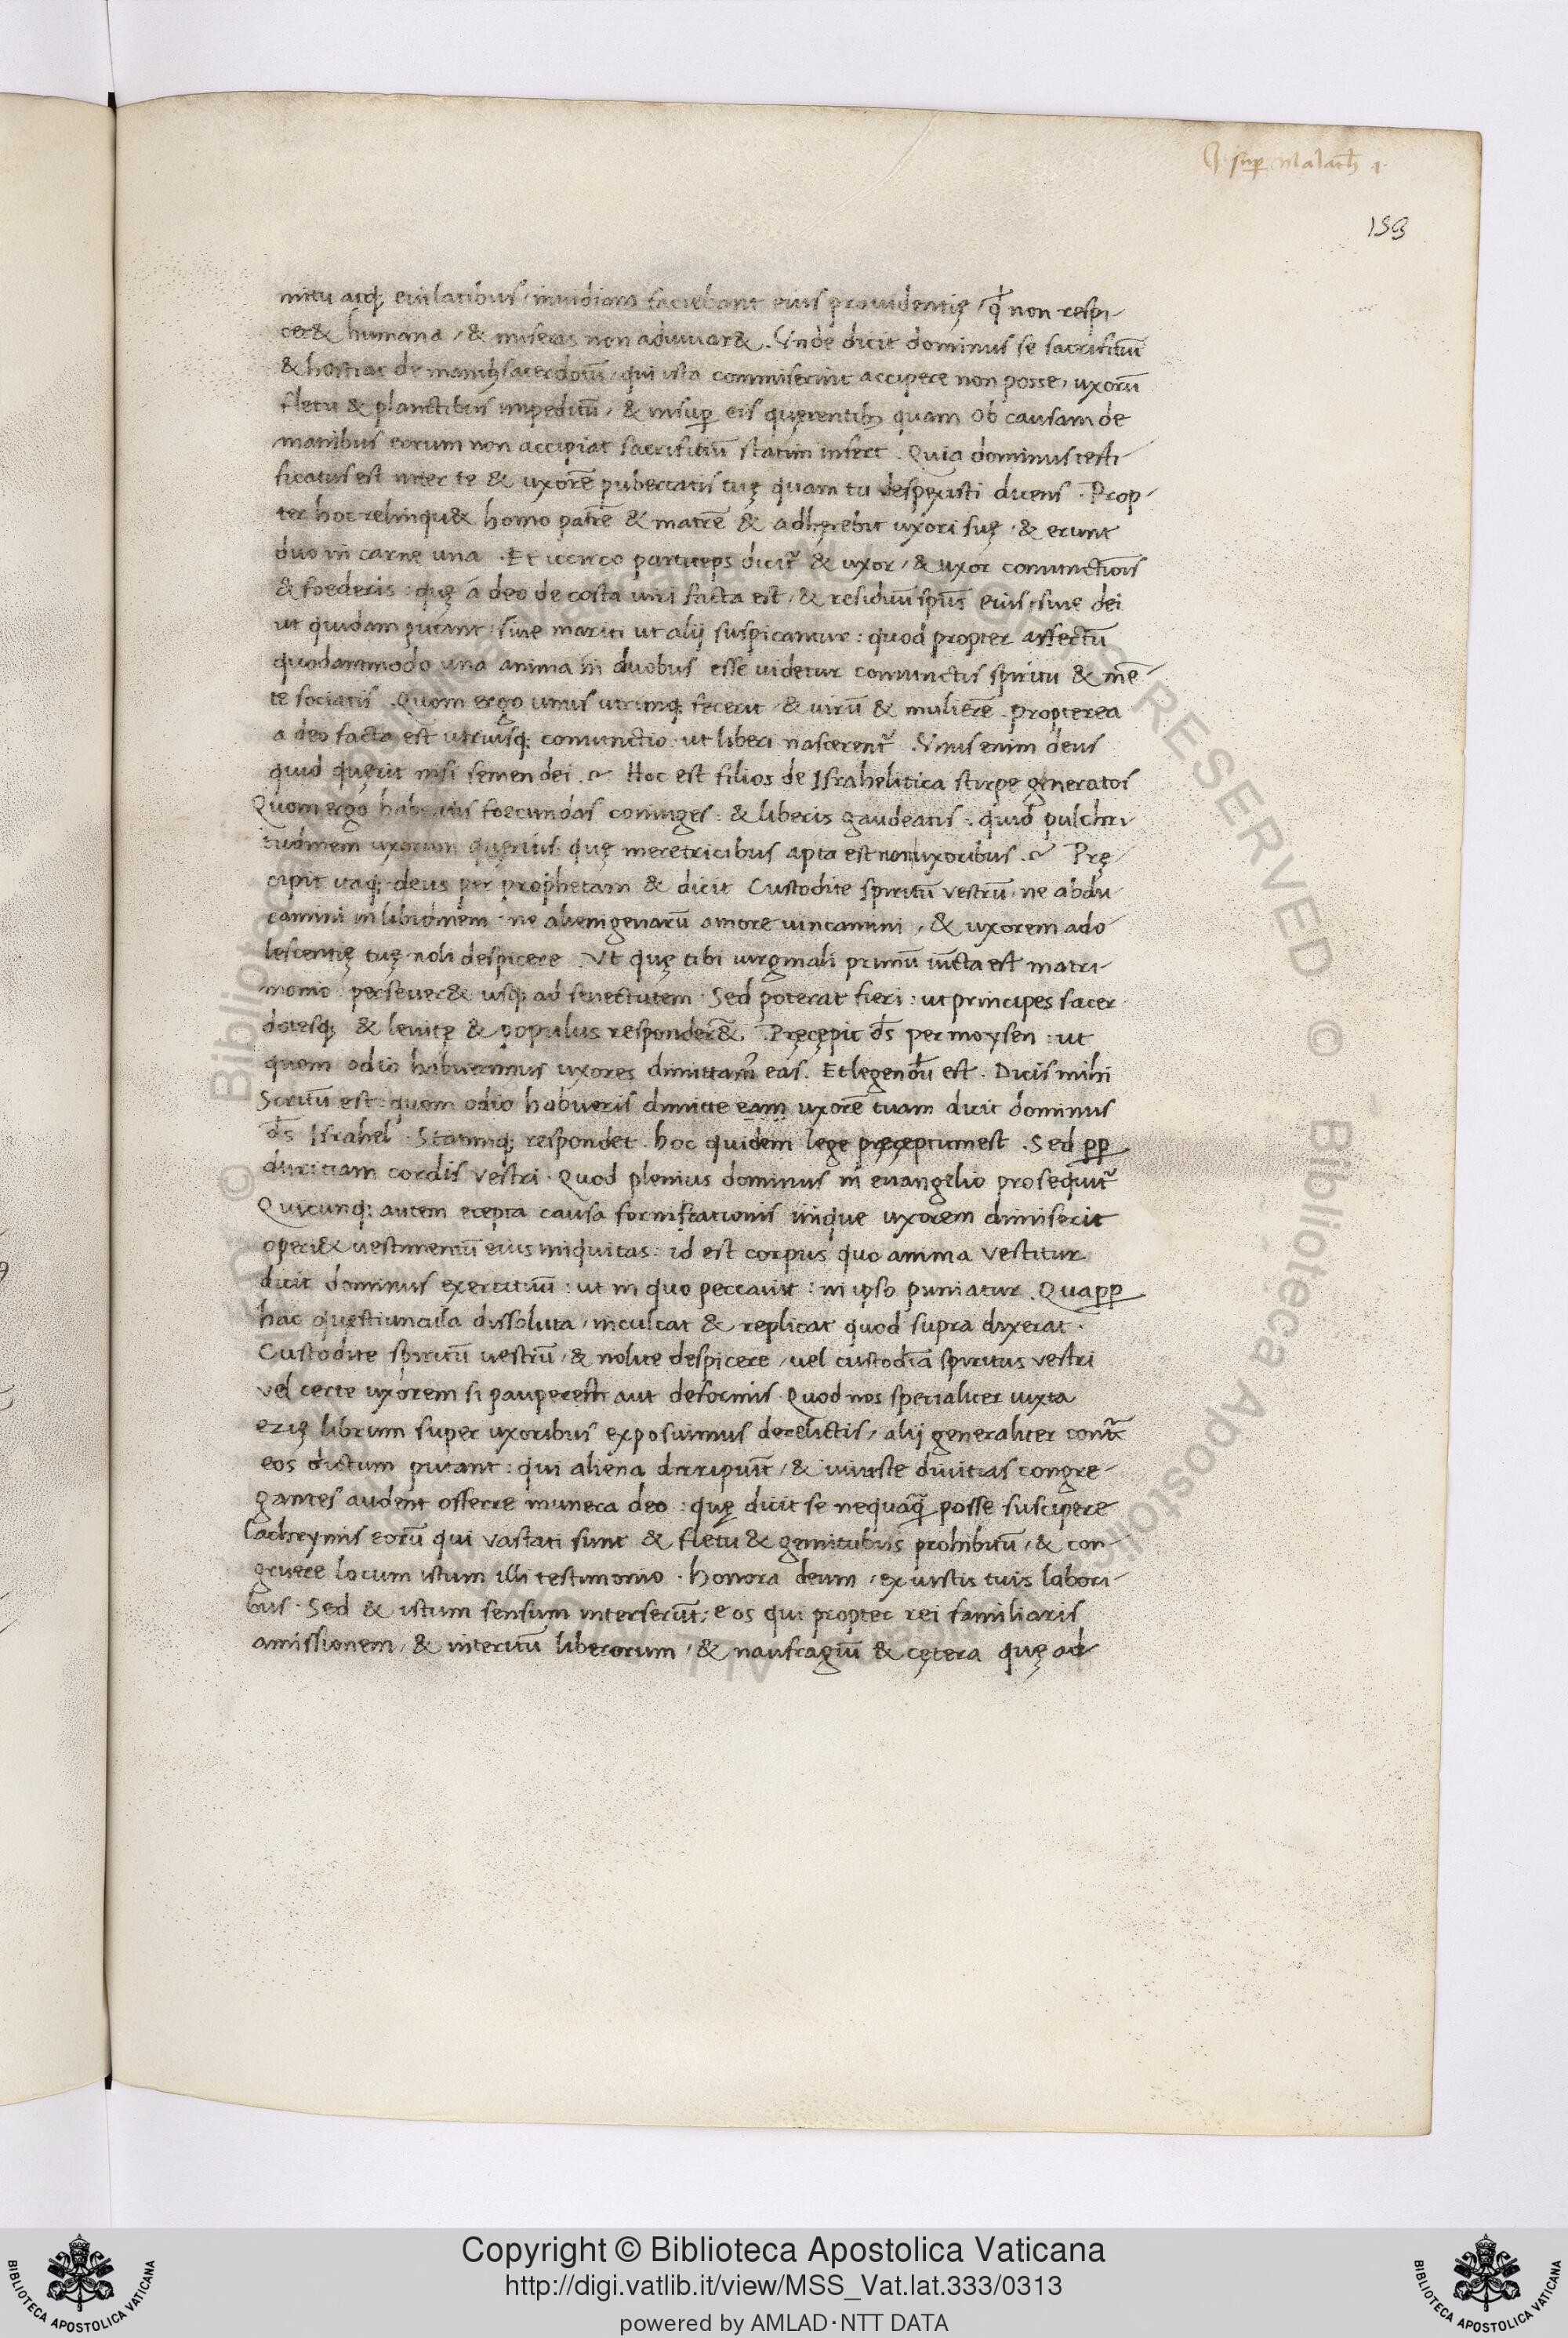 Q super Malach 1.
153
mitu atq; eiulatibus, inuidiam faciebant eius prouidentię, q̃ non respi-
cer& humana, & miseras non adiuuar&. Vnde dicit dominus se sacrifitiū
& hostias de manib; sacerdotū, qui ista commiserint accipere non posse, uxorū
fletu & planctibus impeditū, & insuꝑ eis quęrentib; quam ob causam de
manibus eorum non accipiat sacrifitiū statim infert. Quia dominus testi-
ficatus est inter te & uxorē pubertatis tuę quam tu despexisti dicens. Prop-
ter hoc relinqu& homo patrē & matrē & adhęrebit uxori suę. & erunt
duo in carne una. Et iccirco particeps dicit̃ & uxor, & uxor coniunctiõis
& foederis: quę á deo de costa uiri facta est, & residuū spūs eius, siue dei
ut quidam putant: siue mariti ut alij suspicantur: quod propter affectū
quodammodo una anima in duobus esse uidetur coniunctis spiritu & mē-
te sociatis. Quom ergo unus utrunq; fecerit, & uirū & mulierē. propterea
a deo facta est utriusq; coniunctio, ut liberi nascerent̃. Vnus enim deus
quid quęrit nisi semen dei.? Hoc est filios de Israhelitica stirpe generatos
Quom ergo habeatis foecundas coniuges: & liberis gaudeatis: quid pulchri
tudinem uxorum quęritis: quę meretricibus apta est non uxoribus.? Prę-
cipit itaq; deus per prophetam & dicit Custodite spiritū vestrū, ne abdu-
camini in libidinem: ne alienigenarū amore uincamini, & uxorem ado-
lescentię tuę noli despicere. Vt quę tibi uirginali primū iūcta est matri-
monio: perseuer& usq; ad senectutem. Sed poterat fieri: ut principes sacer-
dotesq; & leuitę & populus responder&. Pręcępit d̄s per moysen: ut
quom odio habuerimus uxores dimittam̃ eas. Et legendū est. Dicis mihi
Scritū est: quom odio habueris dimitte eam uxorē tuam dicit dominus
d̄s Israhel. Statimq; respondet. hoc quidem lege pręcęptum est. Sed ꝓꝑ
duritiam cordis vestri. Quod plenius dominus in euangelio prosequit̃
Quicunq; autem ecepta causa fornicationis inique uxorem dimiserit
operi& uestimentū eius iniquitas: id est corpus quo anima vestitur
dicit dominus exercituū: ut in quo peccauit: in ipso puniatur. Quaꝓꝑ
hac quęstiuncula dissoluta, inculcat & replicat quod supra dixerat.
Custodite spiritū uestrū, & nolite despicere, uel custodiā spiritus vestri
vel certe uxorem si pauper est aut deformis. Quod nos specialiter iuxta
ezrę librum super uxoribus exposuimus derelictis, alij generaliter cont̃
eos dictum putant: qui aliena diripiūt, & iniuste diuitias congre-
gantes audent offerre munera deo: quę dicit se nequaq̃ posse suscipere
lachrymis eorū qui vastati sunt & fletu & gemitubus prohibitū, & con-
gruere locum istum illi testimonio. honora deum, ex iustis tuis labori-
bus. Sed & istum sensum interserūt; eos qui propter rei familiaris
amissionem, & interitū liberorum, & naufragiū & cętera quę ad
Copyright © Biblioteca Apostolica Vaticana
http://digi.vatlib.it/view/MSS_Vat.lat.333/0313
powered by AMLAD·NTT DATA